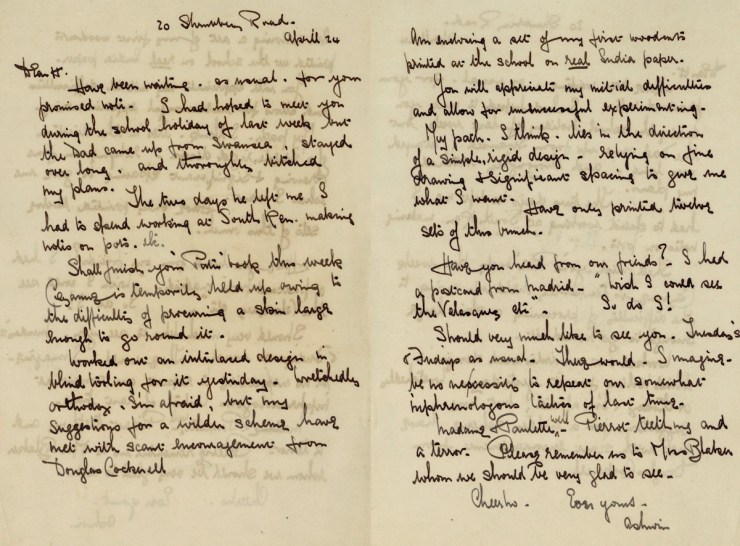 20 Shrubbery Road.
April 24
Dear H.
Have been waiting. as usual. for your
promised note. I had hoped to meet you
during the school holiday of last week but
the Dad came up from Swansea, stayed
over long. and thoroughly bitched
my plans. The two days he left me I
had to spend working at South Ken. making
notes on pots. etc.
Shall finish your 'Potis' book this week
Cezanne is temporily held up owing to
the difficulties of procuring a skin large
enough to go round it.
Worked out an interlaced design in
blind tooling for it yesterday. Wretchedly
orthodox, I'm afraid, but my
suggestions for a wilder scheme have
met with scant encouragement from
Douglas Cockerell
Am enclosing a set of my first woodcuts
printed at the school on real India paper.
You will appreciate my initial difficulties
and allow for unsuccessful experimenting.
My path. I think. lies in the direction
of a simple, rigid design - relying on fine
drawing & significant spacing to give me
what I want. Have only printed twelve
sets of this bunch.
Have you heard from our friends? - I had
a postcard from Madrid - "Wish I could see
the Velasquez etc". So do I!
Should very much like to see you. Tuesday's
Fridays as usual. There would. I imagine.
be no necessity to repeat our somewhat
of last time.
Madame - Pierrot teething and
a terror. Please remember us to Miss Blaker
whom we should be very glad to see.
Cheerho. Ever yours.
Ashwin